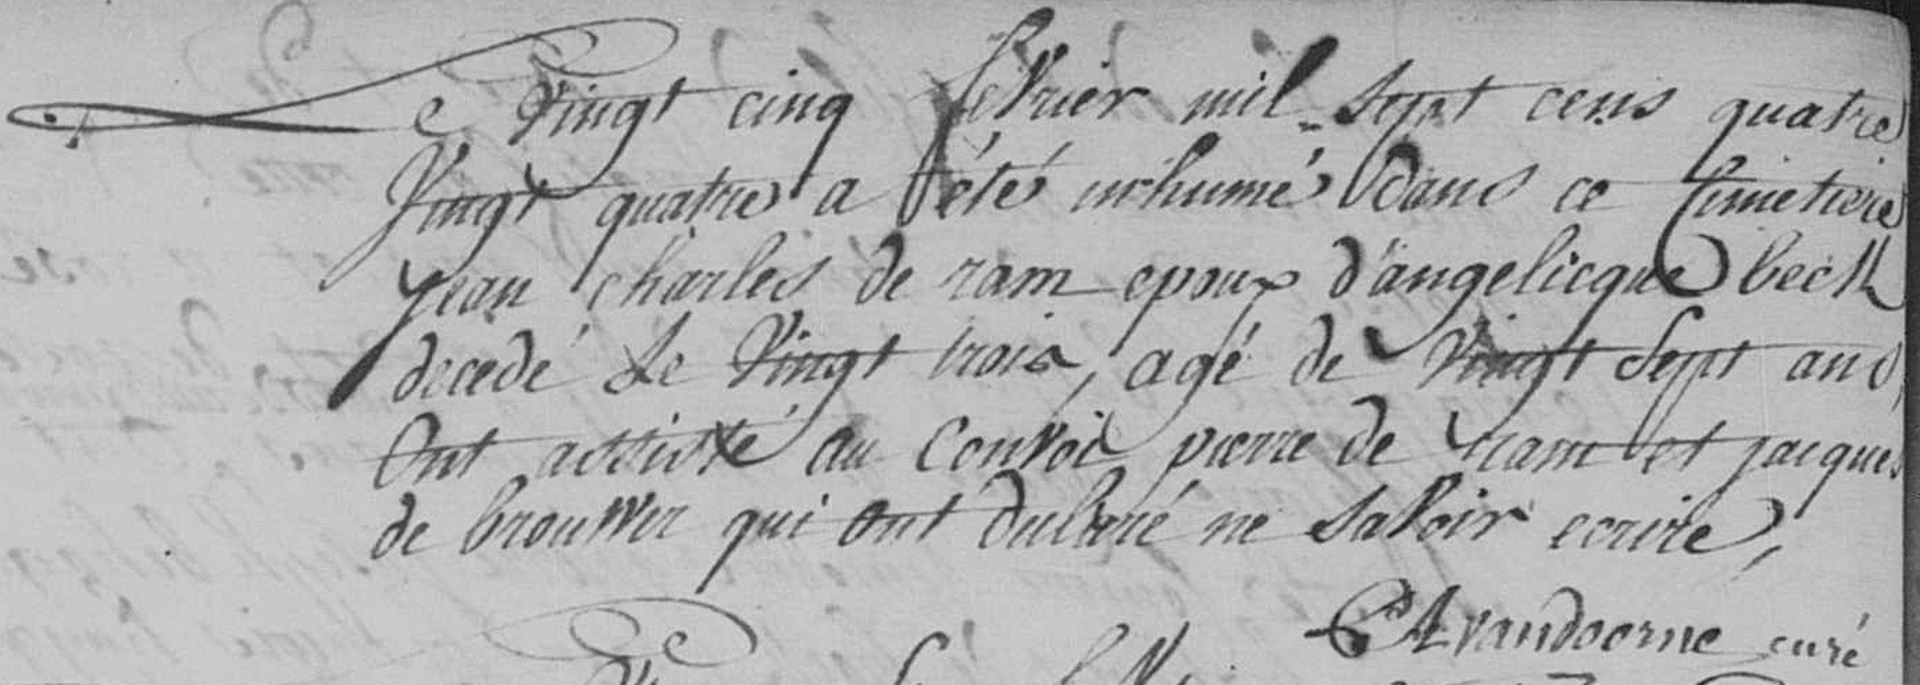 Le Vingt cinq fevrier mil sept cens quatre
Vingt quatre a été inhumé dans ce Cimetiere
jean charles de ram epoux d'angelicque beck
decedé Le Vingt trois, agé de Vingt Sept ans,
Ont assisté au Convoi pierre de ram et jacques
de brouwer qui ont declaré ne savoir ecrire,
vandoorne curé